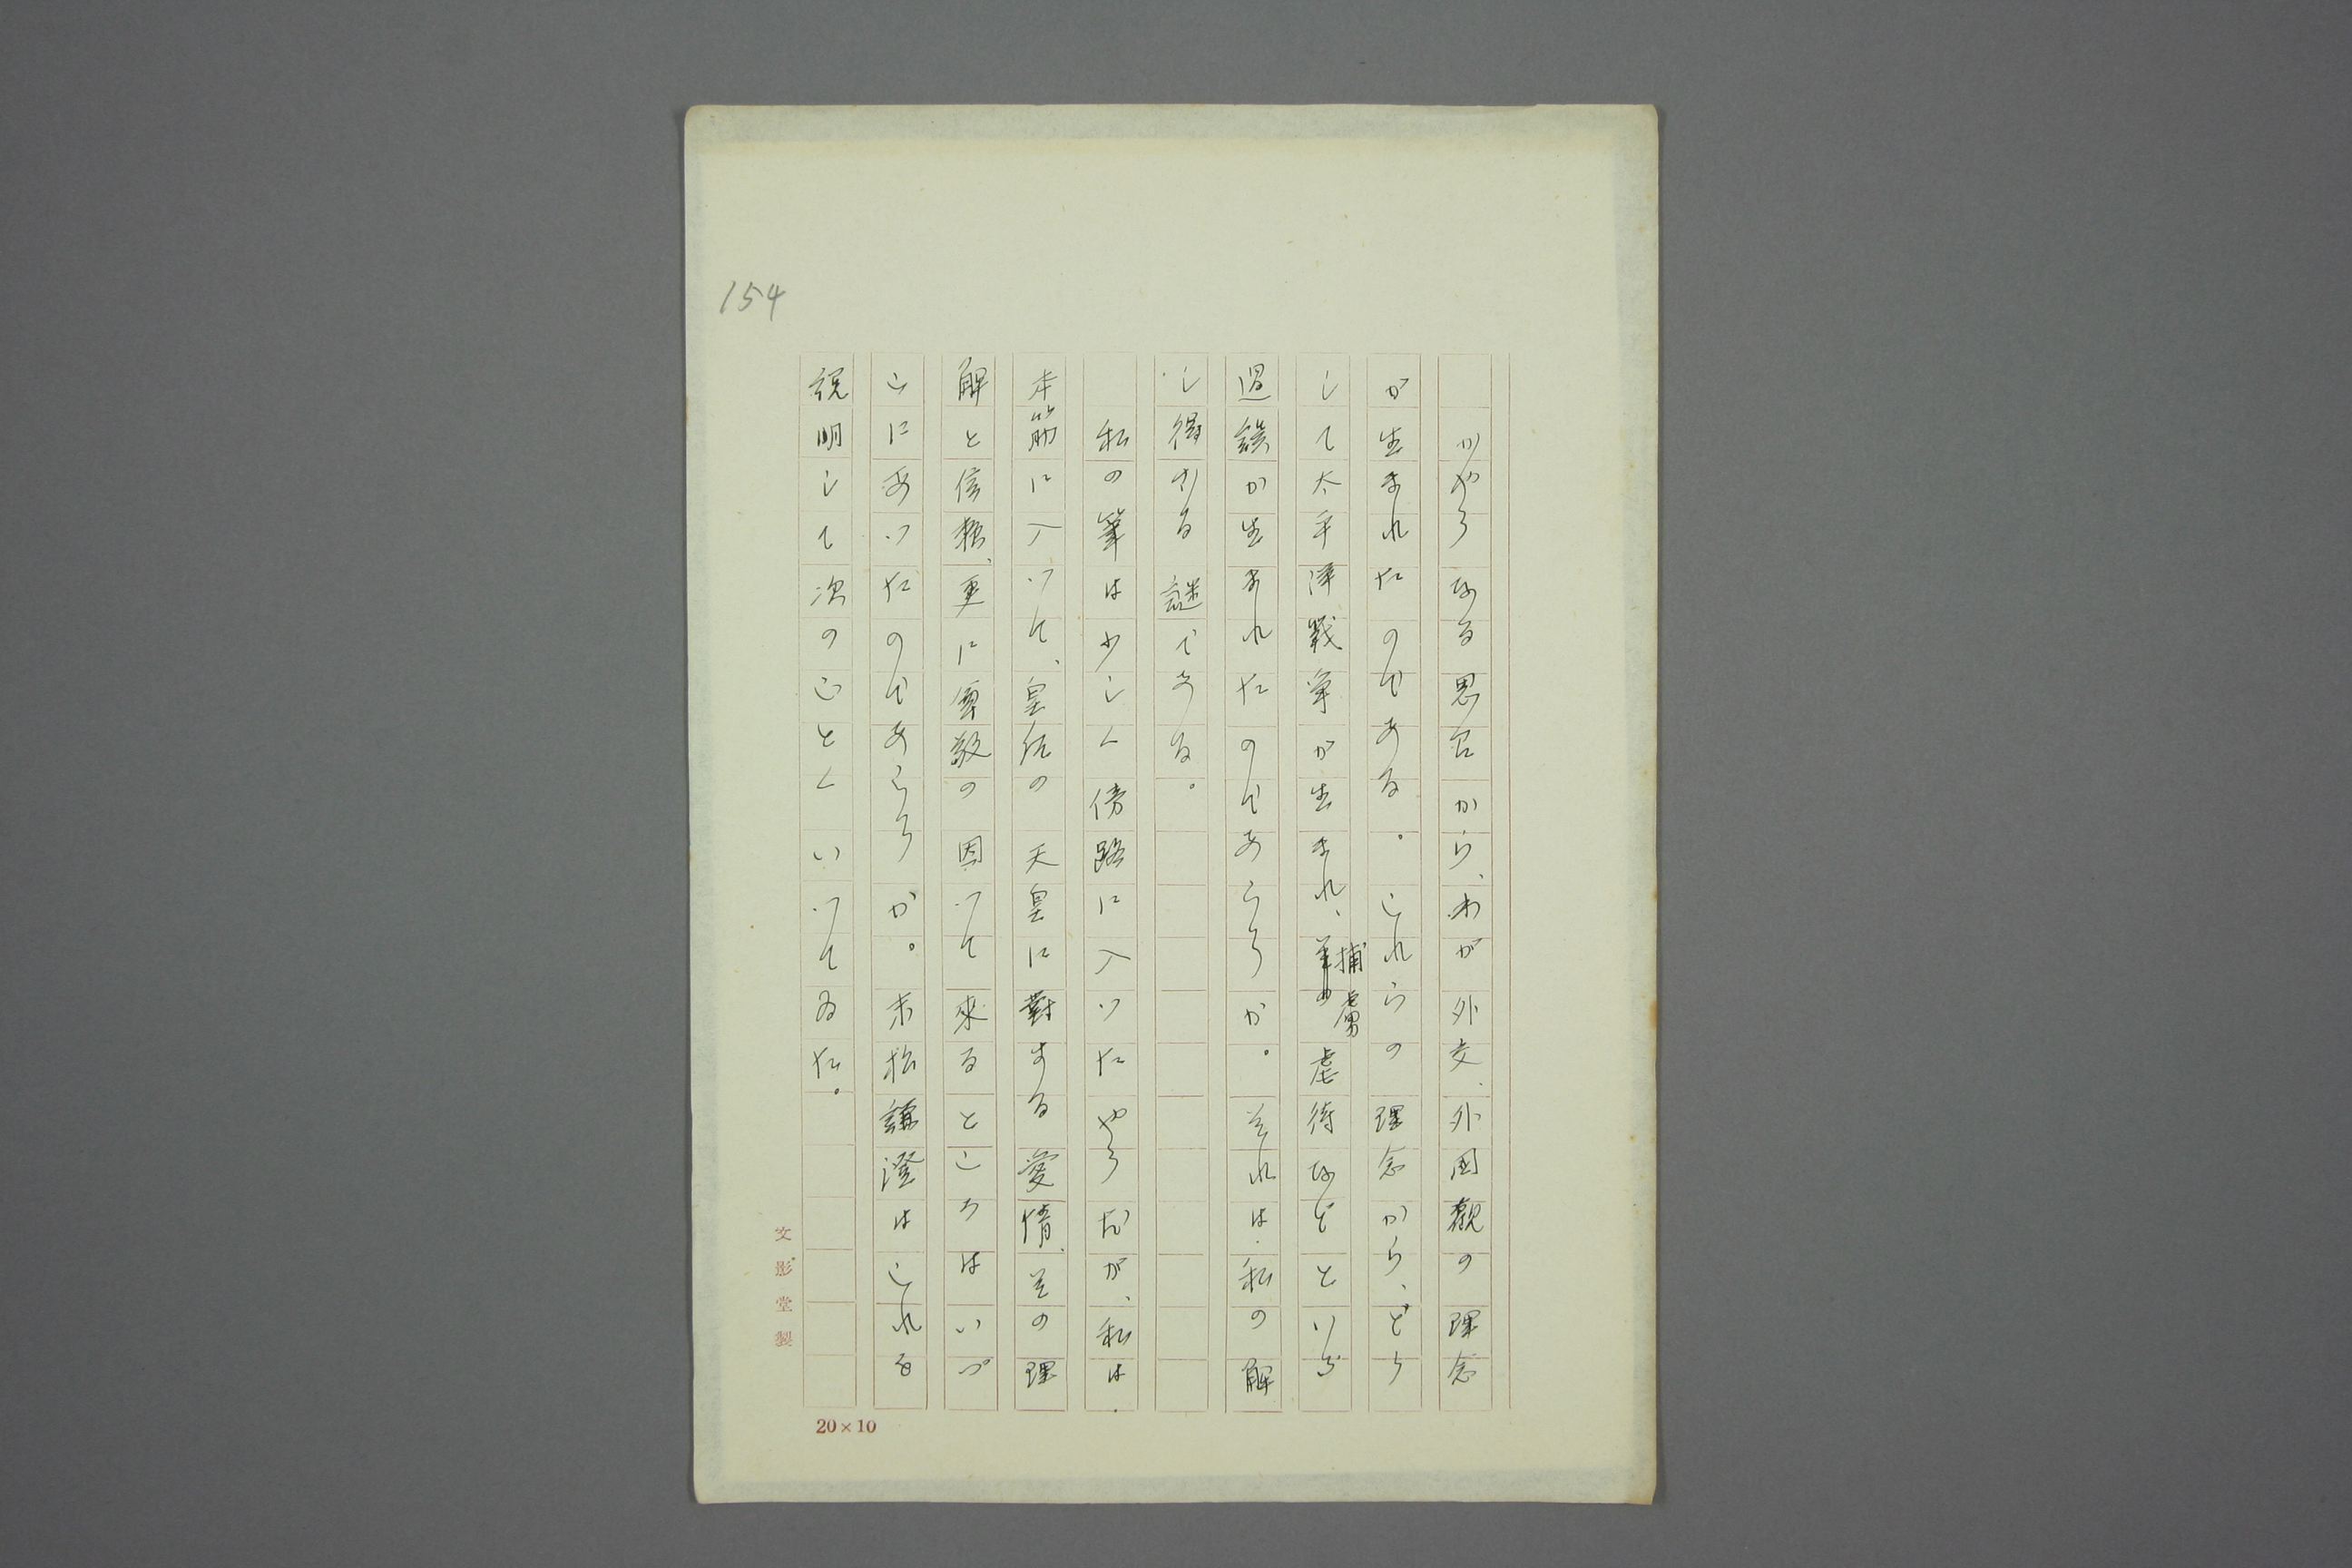 154
かやうなる思召から、わが外交、外国観の理念
が生まれたのである。これらの理念から、どう
して太平洋戦争が生まれ、捕虜虐待などといふ
過誤が生まれたのであらうか。それは私の解
し得ざる謎である。
私の筆は少しく傍路に入つたやうだが、私は
本筋に入つて、皇后の天皇に對する愛情、その理
解と信頼、更に尊敬の因つて来るところはいづ
こにあつたのであらうか。末松謙澄はこれを
説明して次のごとくいつてゐた。
文影堂製
20×10